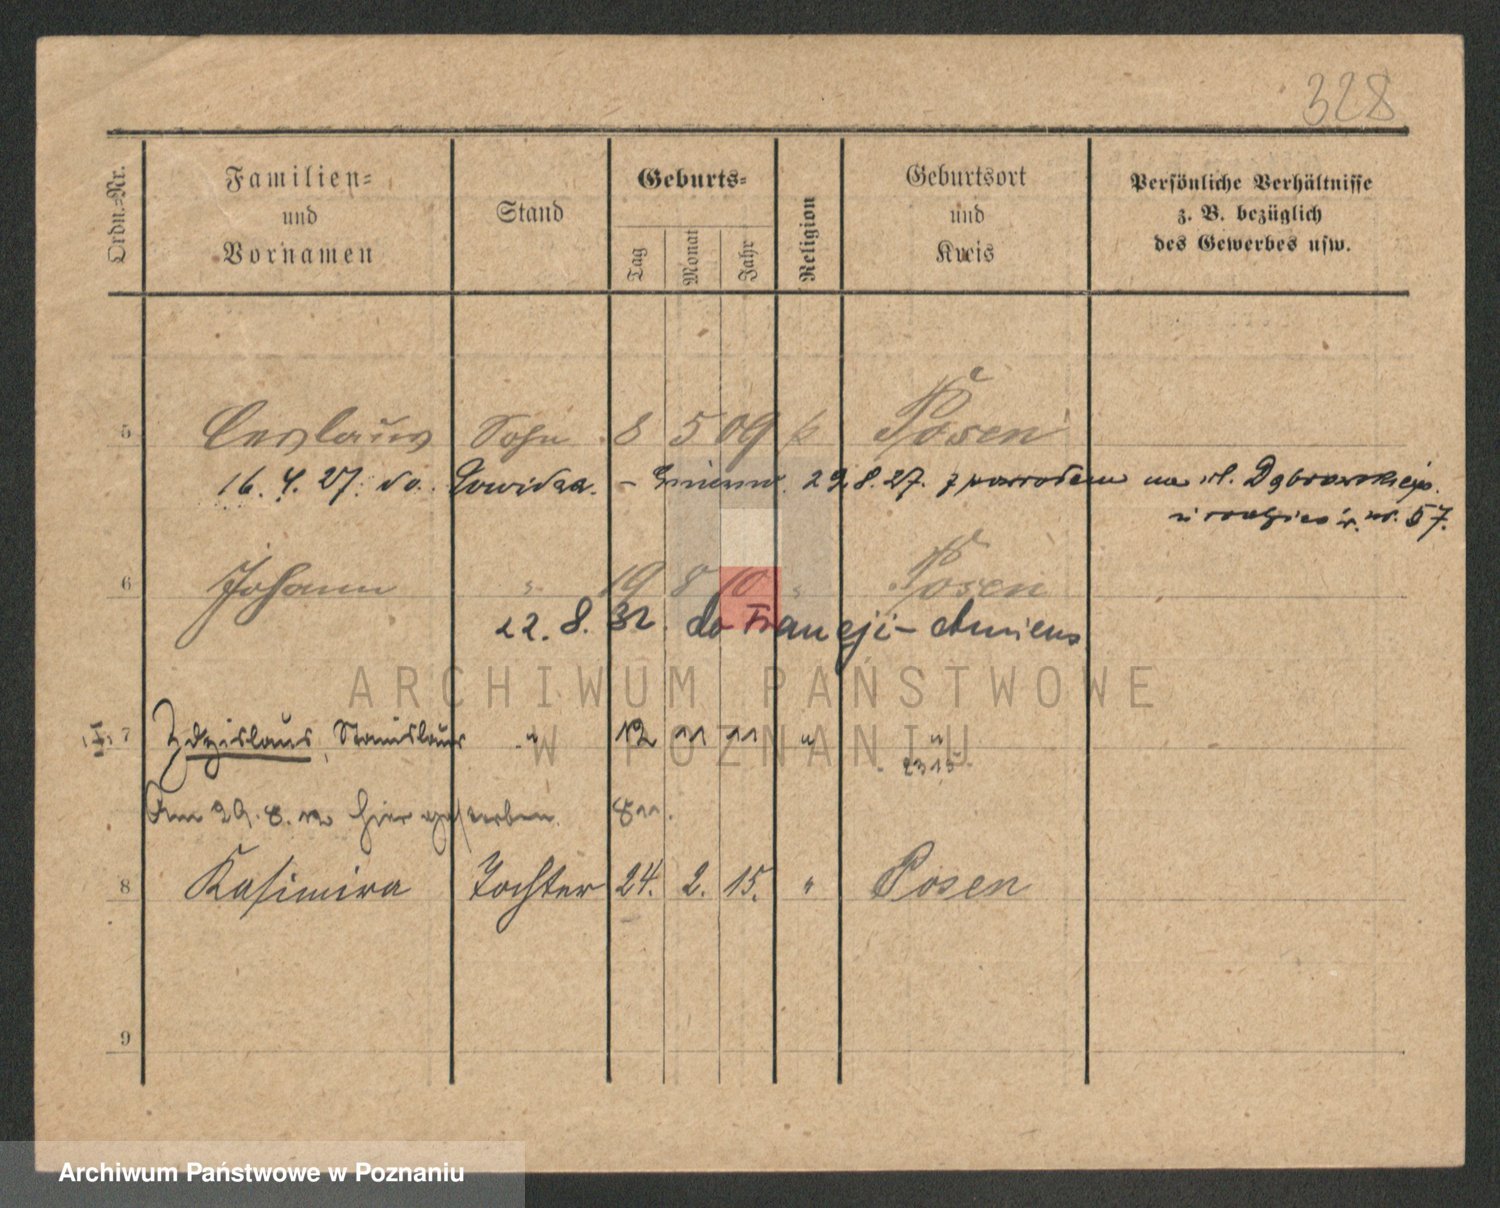 328
Ordn.-Nr.
Familien=
und
Vornamen
Stand
Geburts=
Tag
Monat
Jahr
Religion
Geburtsort
und
Kreis
Persönliche Verhältnisse
z. B. bezüglich
des Gewerbes usw.
5 Ceslaus Sohn 8 5 09 k Posen
16. 4. 27. do 29.8.27. z powrotem na ul. Dąbrowskiego
u rodziców. nr. 57.
6 Johann " 19 8 10 " Posen
22. 8. 32. do Francji - Amiens
ARCHIWUM PAŃSTWOWE
7 Zdzislaus, Stanislaus " 12 11 11 " "
W POZNANIU
2315
Am 29. 8. 12 hier gestorben. 811.
8 Kasimira Tochter 24. 2. 15. " Posen
9
Archiwum Państwowe w Poznaniu